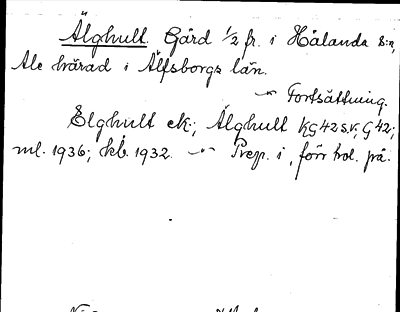 Älghult. Gård 1/2 fr. i Hålanda s:n,
Ale härad i Älfsborgs län.
Fortsättning.
Elghult ek.; Älghult KG42SV, G42;
ml. 1936; kb. 1932. —"— Prep. i, förr trol. på.